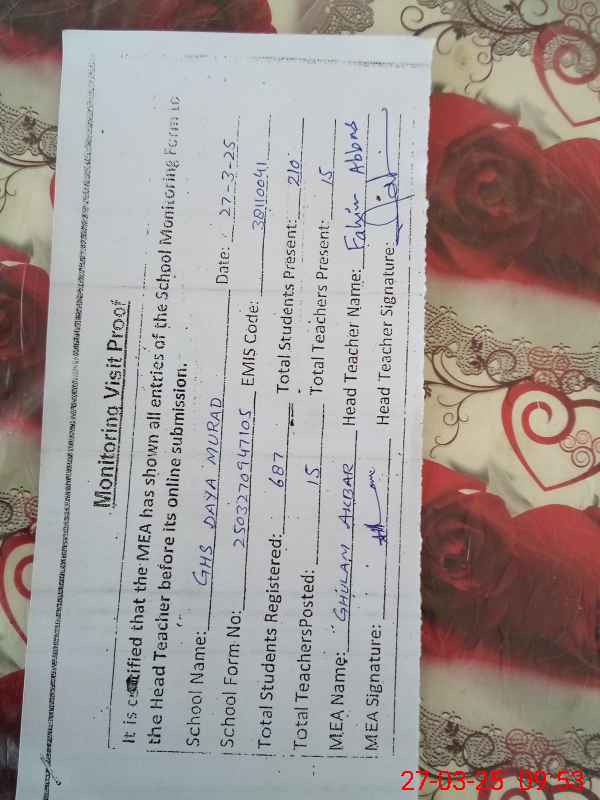 Monitoring Visit Proof
It is certified that the MEA has shown all entries of the School Monitoring Form to
the Head Teacher before its online submission.
School Name: GHS DAYA MURAD Date: 27-3-25
School Form No: 2503270947105 EMIS Code: 38110041
Total Students Registered: 687 Total Students Present: 210
Total TeachersPosted: 15 Total Teachers Present: 15
MEA Name: GHULAM AKBAR Head Teacher Name: Fahim Abbas
MEA Signature: Head Teacher Signature:
27-03-25 09:53